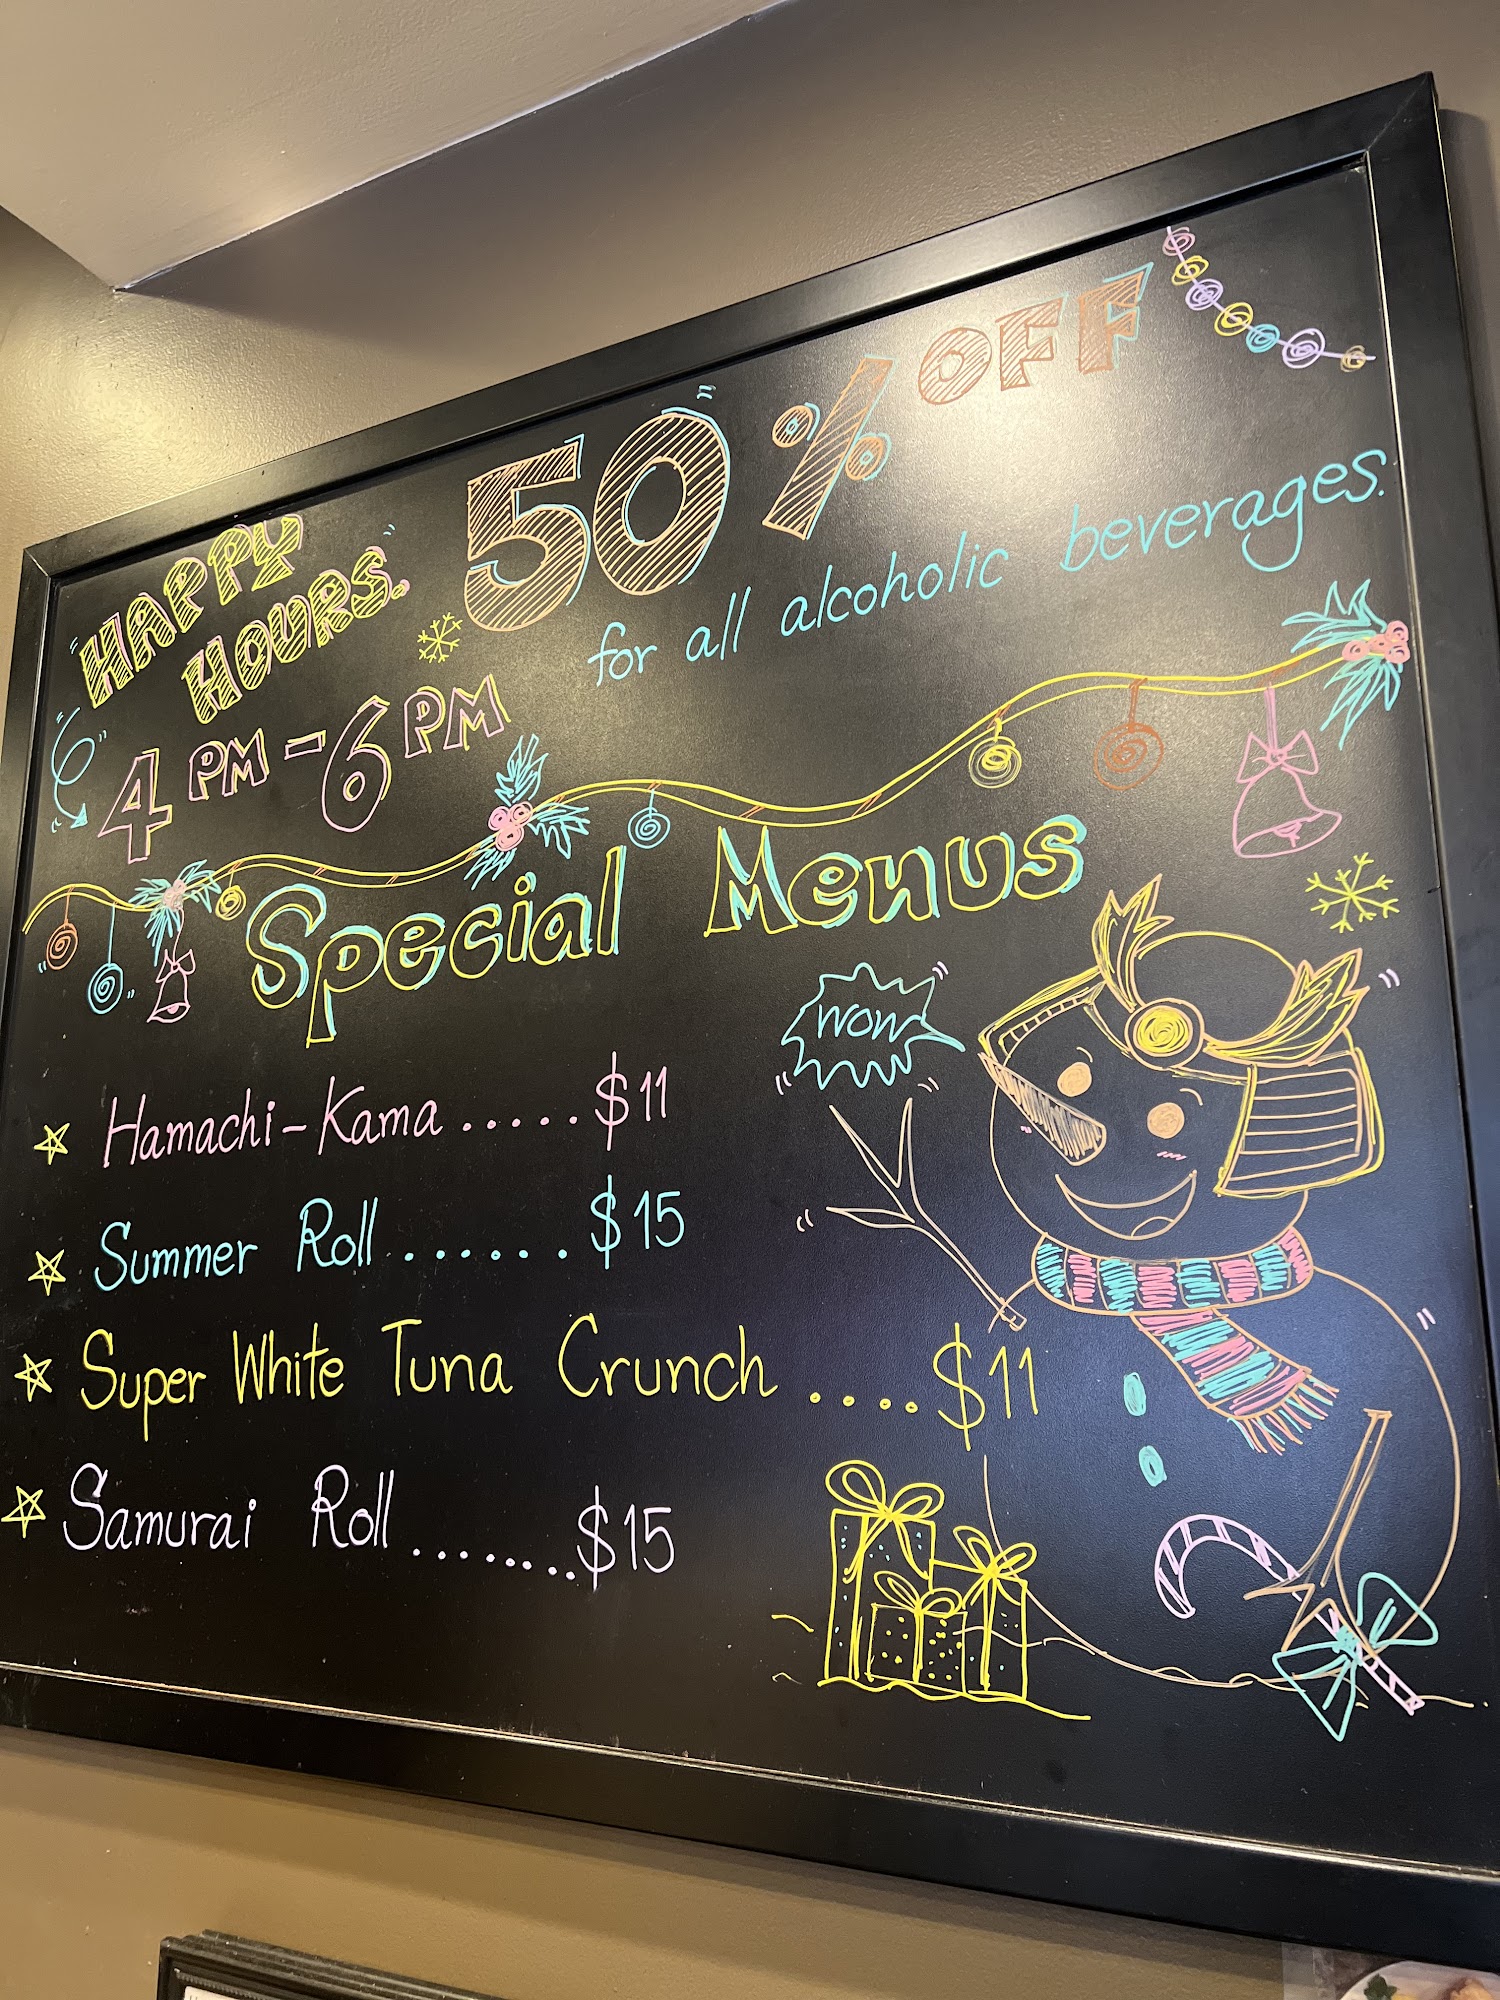 HAPPY
HOURS.
4 PM - 6 PM
50% OFF
for all alcoholic beverages.
Special Menus
Hamachi-Kama ..... $11
Summer Roll ....... $15
Super White Tuna Crunch .... $11
Samurai Roll ........ $15
WOW